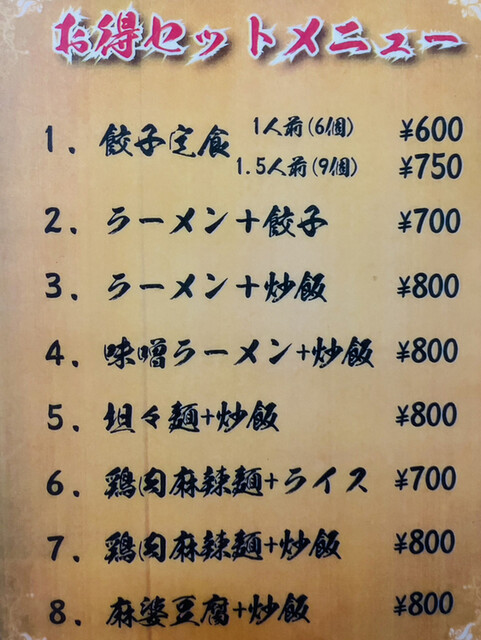 お得セットメニュー
1. 餃子定食 1人前(6個) ¥600
1.5人前(9個) ¥750
2. ラーメン+餃子 ¥700
3. ラーメン+炒飯 ¥800
4. 味噌ラーメン+炒飯 ¥800
5. 坦々麺+炒飯 ¥800
6. 鶏肉麻辣麺+ライス ¥700
7. 鶏肉麻辣麺+炒飯 ¥800
8. 麻婆豆腐+炒飯 ¥800